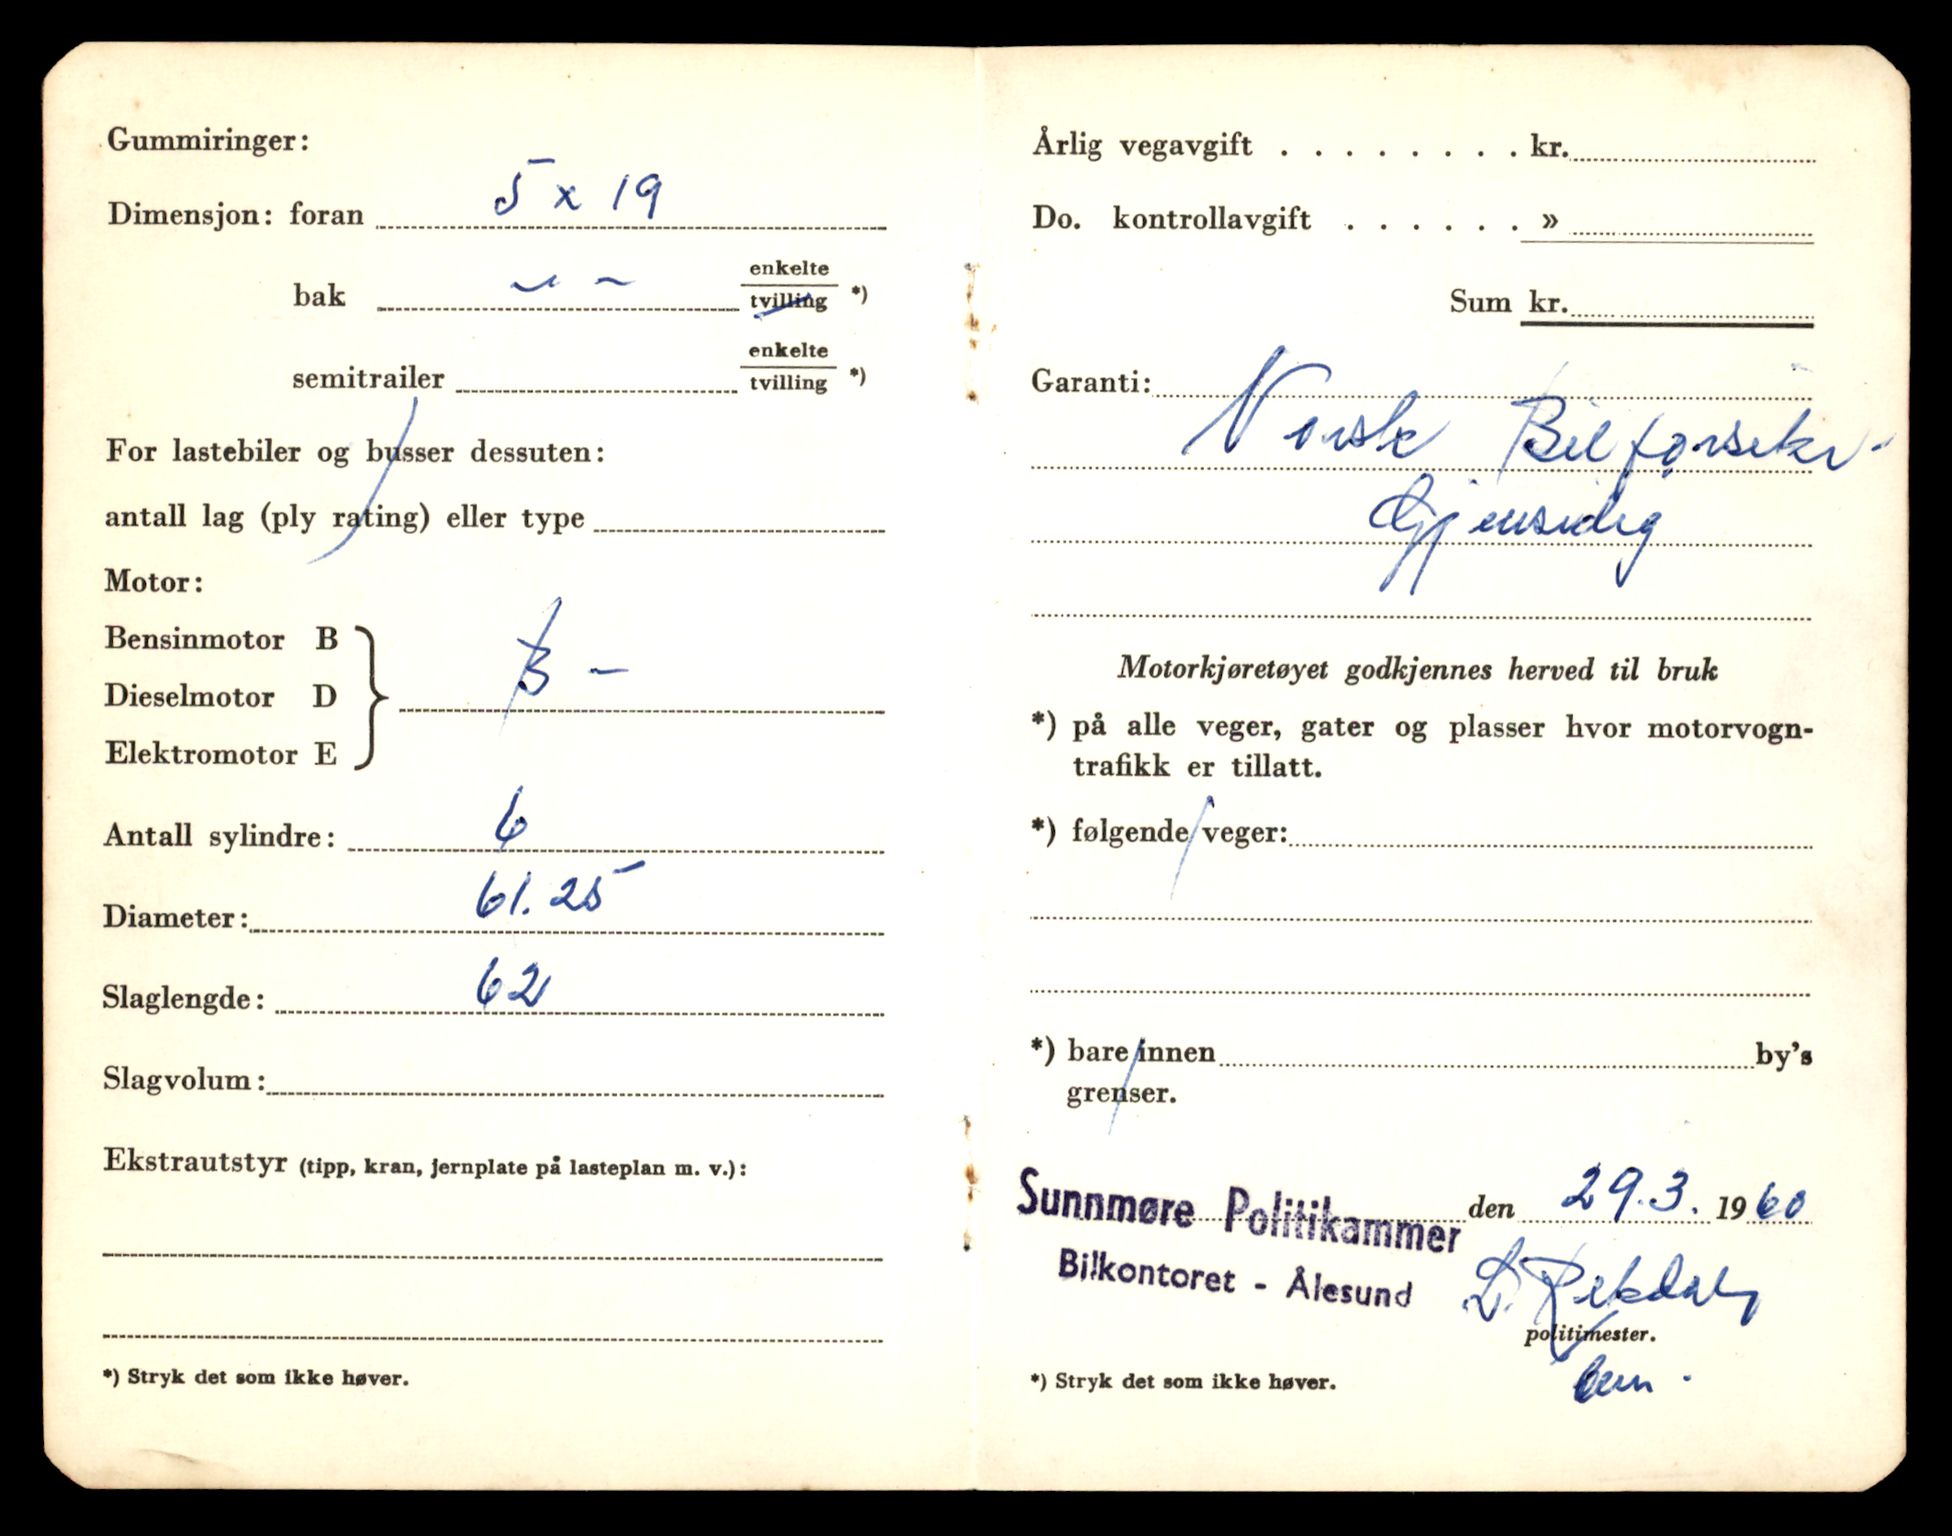 Gummiringer:
Dimensjon: foran 5 x 19
bak — " — enkelte
tvilling *)
semitrailer enkelte
tvilling *)
For lastebiler og busser dessuten:
antall lag (ply rating) eller type
Motor:
Bensinmotor B
Dieselmotor D B –
Elektromotor E
Antall sylindre: 6
Diameter: 61.25
Slaglengde: 62
Slagvolum:
Ekstrautstyr (tipp, kran, jernplate på lasteplan m. v.):
*) Stryk det som ikke høver.
Årlig vegavgift . . . . . . . . kr.
Do. kontrollavgift . . . . . . »
Sum kr.
Garanti:
Norsk Bilforsikr-
Gjensidig
Motorkjøretøyet godkjennes herved til bruk
*) på alle veger, gater og plasser hvor motorvogn-
trafikk er tillatt.
*) følgende veger:
*) bare innen by's
grenser.
Sunnmøre Politikammer den 29.3. 1960
Bilkontoret - Ålesund
L. Rekdal
politimester.
*) Stryk det som ikke høver.